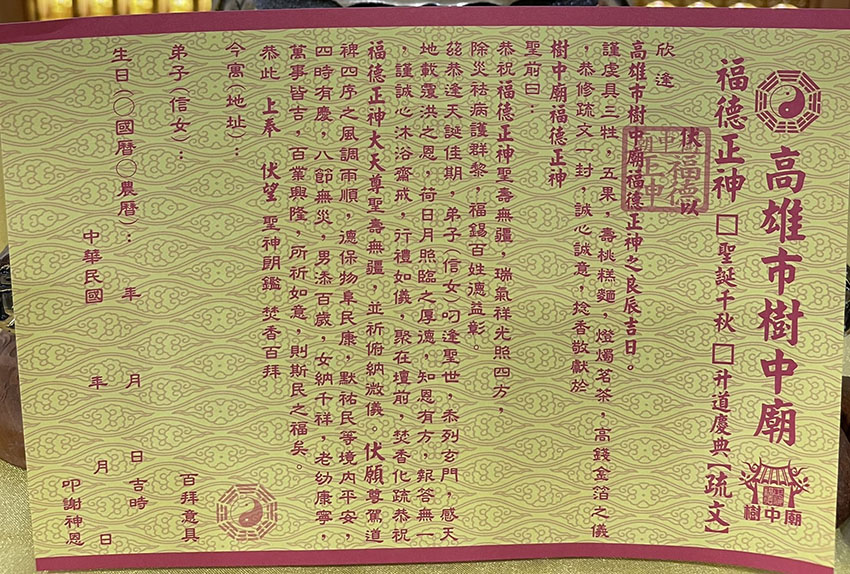 高雄市樹中廟
樹中廟
福德正神 □ 聖誕千秋 □ 升道慶典【疏文】
伏以
福德
正神
欣逢
高雄市樹中廟福德正神之良辰吉日。
謹虔具三牲,五果,壽桃糕麵,燈燭茗茶,高錢金箔之儀
,恭修疏文一封,誠心誠意,捻香敬獻於
樹中廟福德正神
聖前曰:
恭祝福德正神聖壽無疆,瑞氣祥光照四方,
除災祛病護群黎,福錫百姓德益彰。
茲恭逢天誕佳期,弟子(信女)叨逢聖世,忝列玄門,感天
地載覆洪之恩,荷日月照臨之厚德,知恩有方,報答無一
,謹誠心沐浴齋戒,行禮如儀,聚在壇前,焚香化疏恭祝
福德正神大天尊聖壽無疆,並祈俯納微儀。伏願尊駕道
裨四序之風調雨順,德保物阜民康,默祐民等境內平安,
四時有慶,八節無災,男添百歲,女納千祥,老幼康寧,
萬事皆吉,百業興隆,所祈如意,則斯民之福矣。
恭此 上奉 伏望 聖神朗鑑 焚香百拜
今寓(地址):
弟子(信女): 百拜意具
生日(○國曆○農曆): 年 月 日吉時
中華民國 年 月 日
叩謝神恩